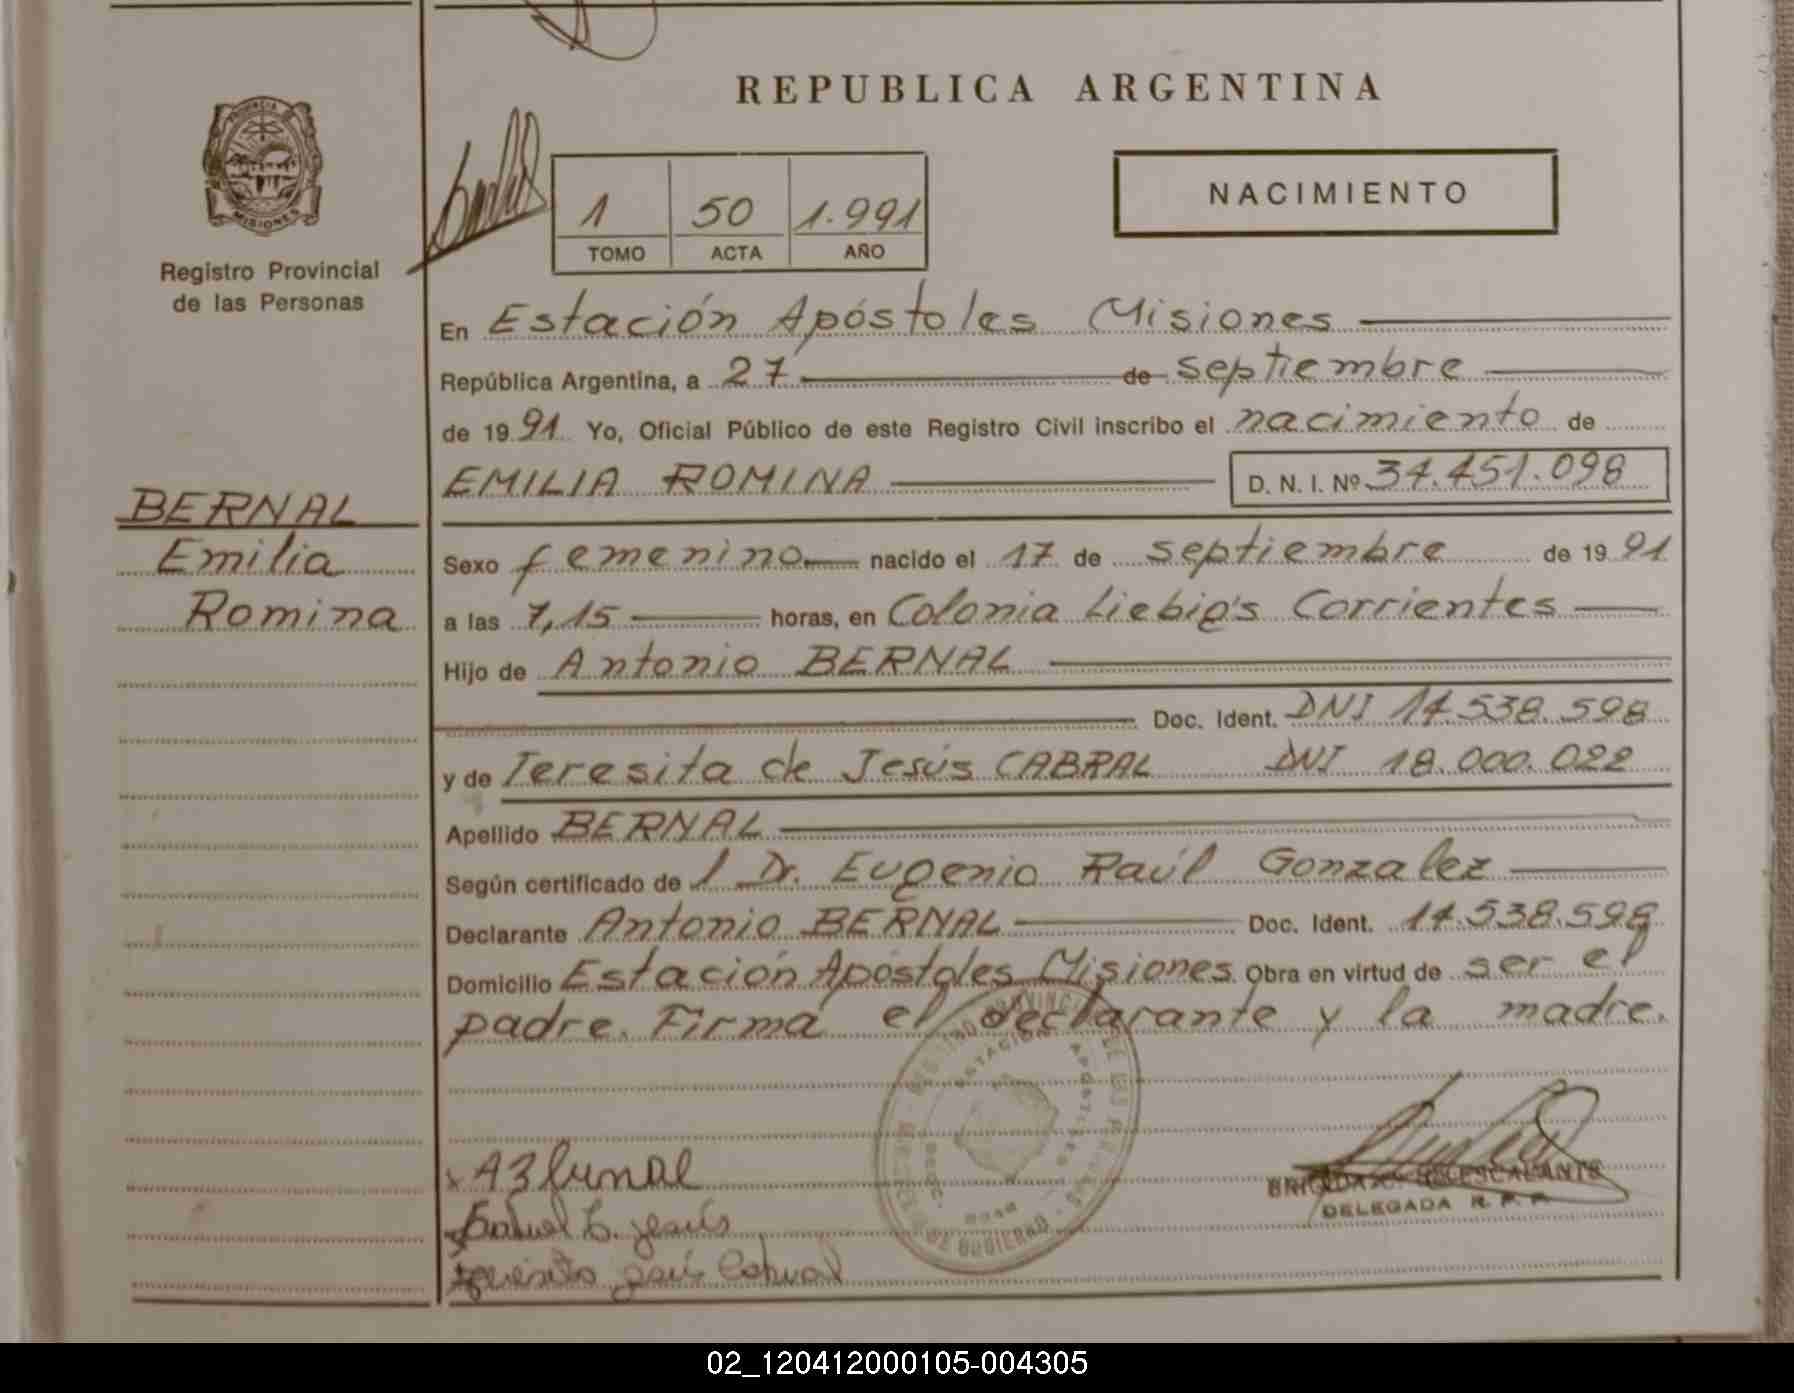 REPUBLICA ARGENTINA
PROVINCIA
MISIONES
Registro Provincial
de las Personas
1 50 1.991
TOMO ACTA AÑO
NACIMIENTO
En Estación Apóstoles Misiones
República Argentina, a 27 de septiembre
de 1991 Yo, Oficial Público de este Registro Civil inscribo el nacimiento de
EMILIA ROMINA D. N. I. Nº 34.451.098
BERNAL
Emilia
Romina
Sexo femenino nacido el 17 de septiembre de 1991
a las 7,15 horas, en Colonia Liebig's Corrientes
Hijo de Antonio BERNAL
Doc. Ident. DNI 14.538.598
y de Teresita de Jesús CABRAL DNI 18.000.022
Apellido BERNAL
Según certificado de l Dr. Eugenio Raúl Gonzalez
Declarante Antonio BERNAL Doc. Ident. 14.538.598
Domicilio Estación Apóstoles Misiones Obra en virtud de ser el
padre. Firma el declarante y la madre.
DELEGADA R. P. P.
02_120412000105-004305